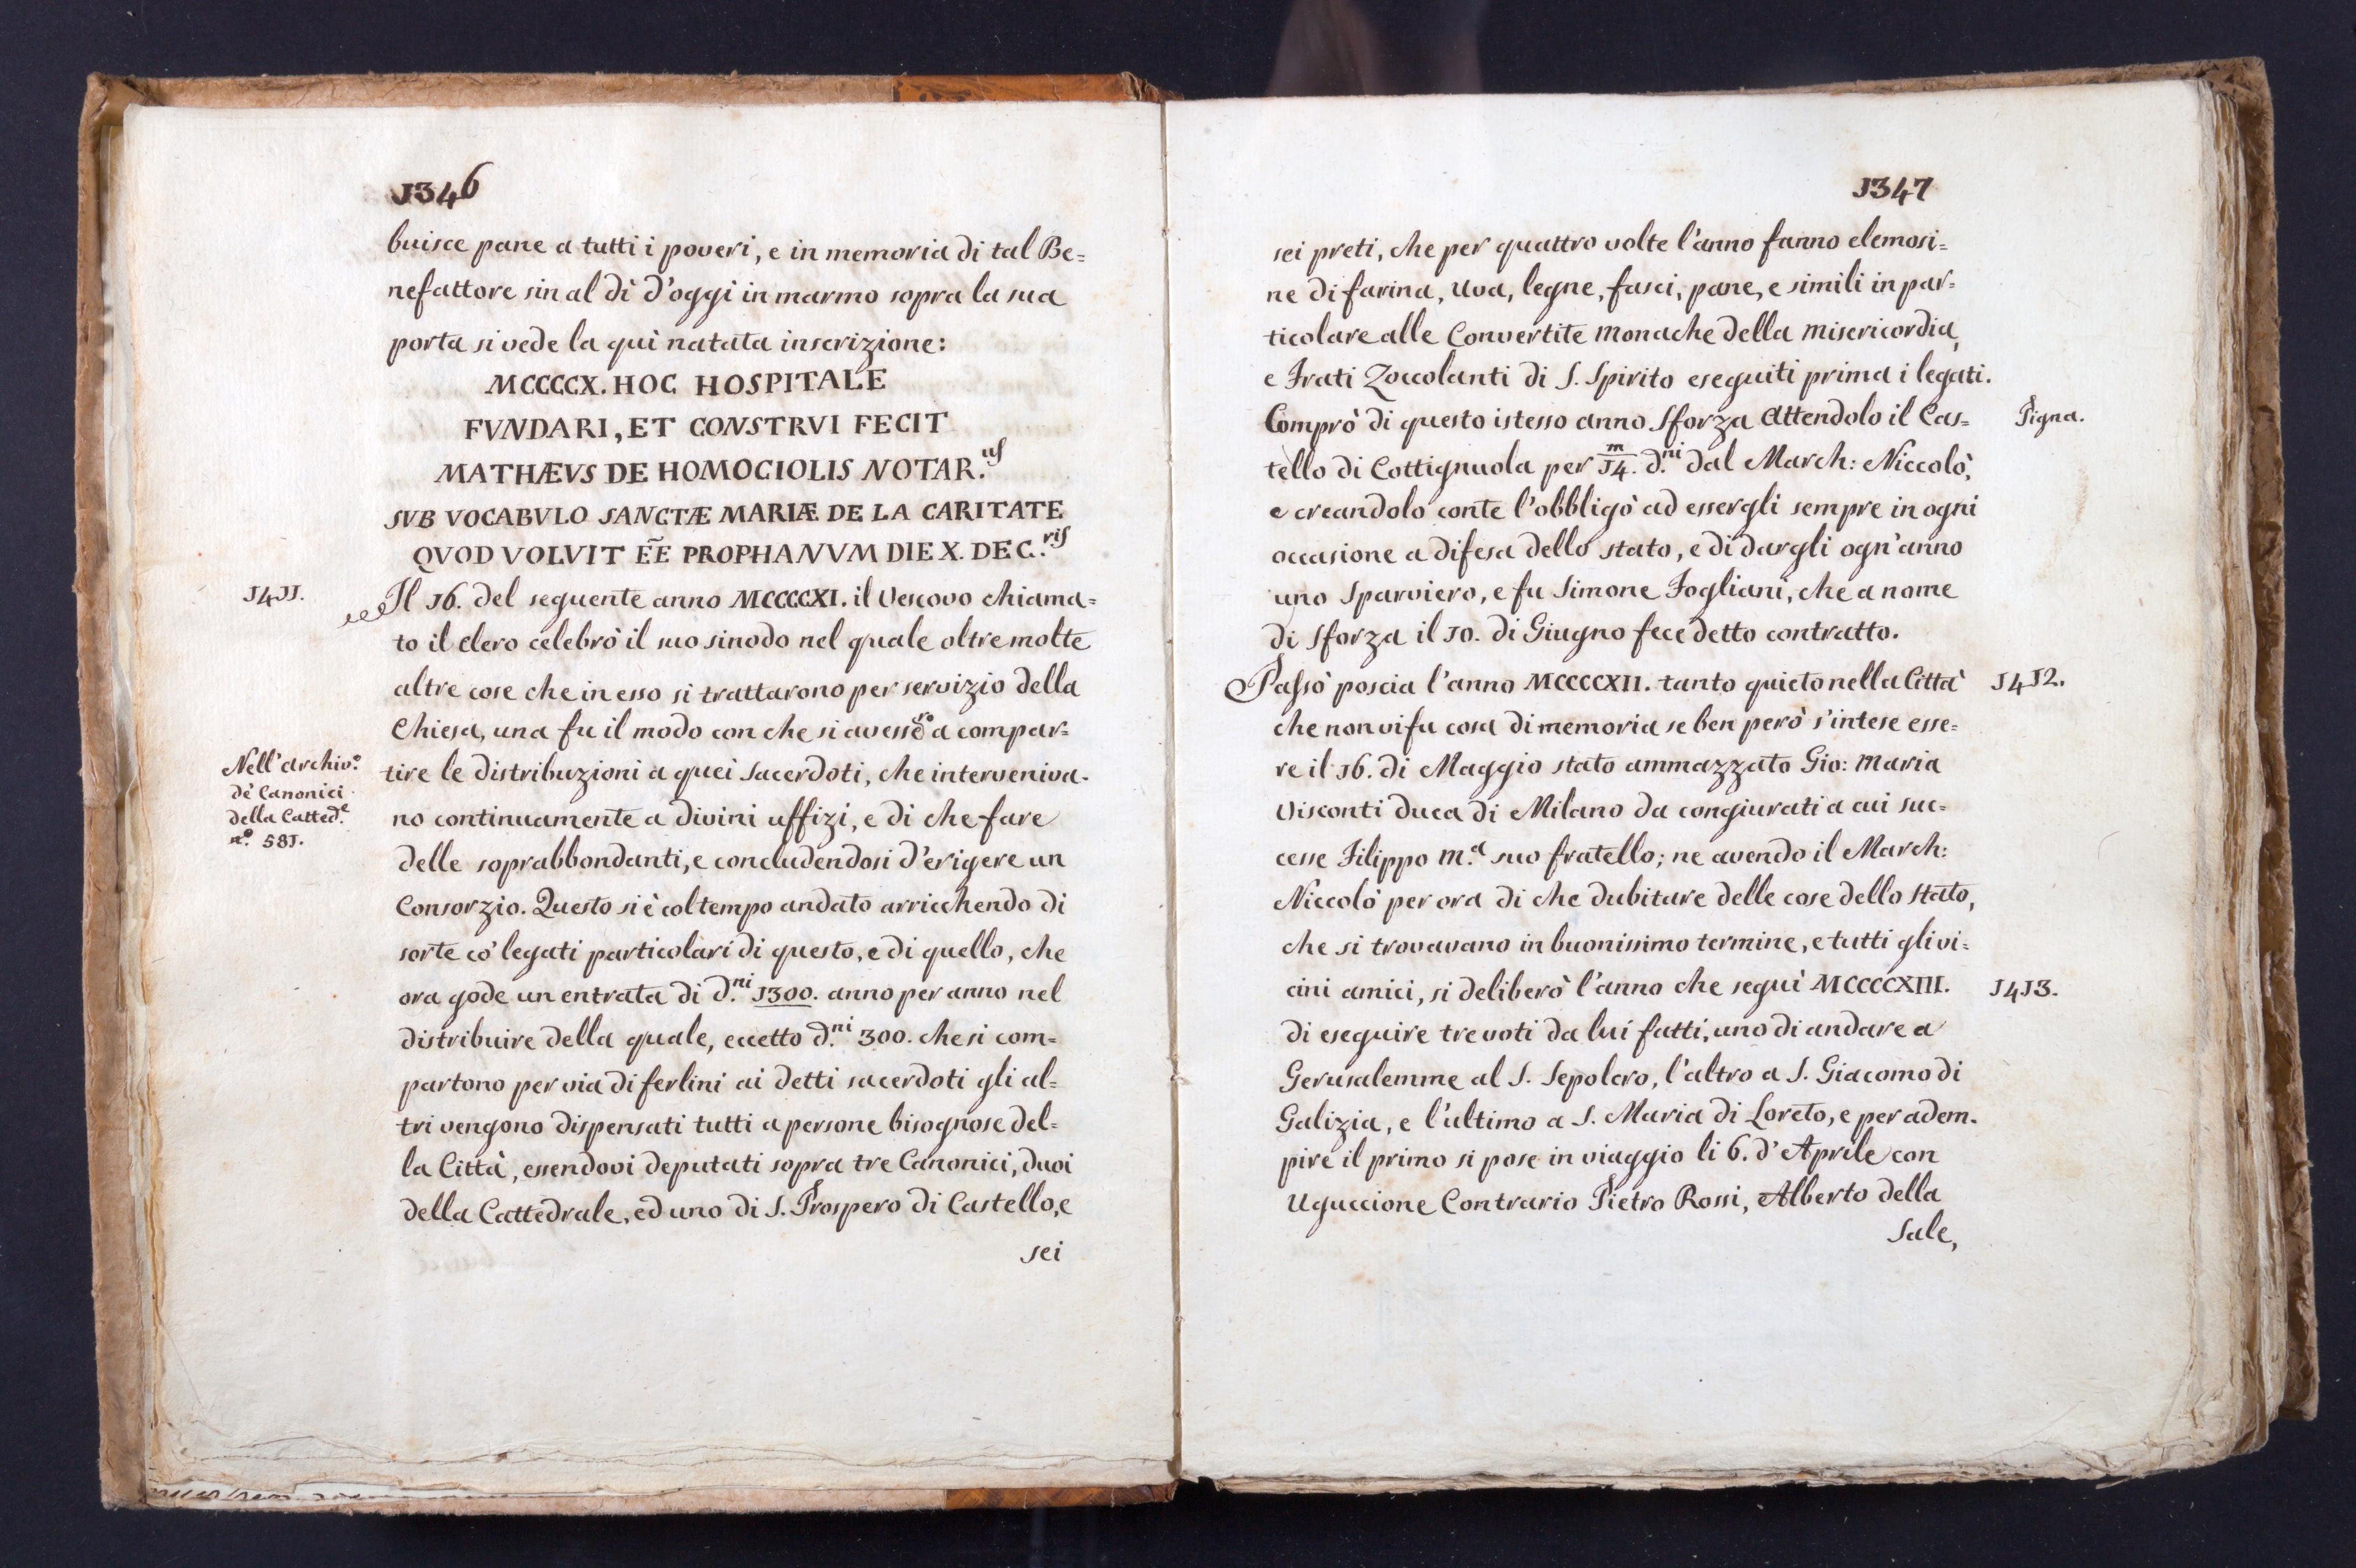 1346
buisce pane a tutti i poveri, e in memoria di tal Be=
nefattore sin al dì d'oggi in marmo sopra la sua
porta si vede la quì natata inscrizione:
MCCCCX. HOC HOSPITALE
FVNDARI, ET CONSTRVI FECIT
MATHÆVS DE HOMOCIOLIS NOTAR.us
SVB VOCABVLO SANCTÆ MARIÆ DE LA CARITATE
QVOD VOLVIT EE̅ PROPHANVM DIE X. DEC.ris
1411.
Il 16. del seguente anno MCCCCXI. il Vescovo chiama=
to il clero celebrò il suo sinodo nel quale oltre molte
altre cose che in esso si trattarono per servizio della
Chiesa, una fu il modo con che si avessero a compar=
Nell'archiv.o
de' Canonici
della Catted.e
n.o 581.
tire le distribuzioni a quei sacerdoti, che interveniva-
no continuamente a divini uffizi, e di che fare
delle soprabbondanti, e concludendosi d'erigere un
Consorzio. Questo si è col tempo andato arricchendo di
sorte co' legati particolari di questo, e di quello, che
ora gode un entrata di d.ni 1300. anno per anno nel
distribuire della quale, eccetto d.ni 300. che si com=
partono per via di ferlini ai detti sacerdoti gli al=
tri vengono dispensati tutti a persone bisognose del=
la Città, essendovi deputati sopra tre Canonici, duoi
della Cattedrale, ed uno di S. Prospero di Castello, e
sei
1347
sei preti, che per quattro volte l'anno fanno elemosi=
ne di farina, Uva, legne, fasci, pane, e simili in par=
ticolare alle Convertite Monache della Misericordia,
e Frati Zoccolanti di S. Spirito eseguiti prima i legati.
Comprò di questo istesso anno Sforza Attendolo il Cas=
Pigna.
tello di Cottignuola per 14.m d.ni dal March: Niccolò,
e creandolo conte l'obbligò ad essergli sempre in ogni
occasione a difesa dello stato, e di dargli ogn'anno
uno Sparviero, e fu Simone Fogliani, che a nome
di Sforza il 10. di Giugno fece detto contratto.
Passò poscia l'anno MCCCCXII. tanto quieto nella Città
1412.
che non vi fu cosa di memoria se ben però s'intese esse=
re il 16. di Maggio stato ammazzato Gio: Maria
Visconti duca di Milano da congiurati a cui suc=
cesse Filippo M.a suo fratello; ne avendo il March:
Niccolò per ora di che dubitare delle cose dello stato,
che si trovavano in buonissimo termine, e tutti gli vi=
cini amici, si deliberò l'anno che seguì MCCCCXIII.
1413.
di eseguire tre voti da lui fatti, uno di andare a
Gerusalemme al S. Sepolcro, l'altro a S. Giacomo di
Galizia, e l'ultimo a S. Maria di Loreto, e per adem-
pire il primo si pose in viaggio li 6. d'Aprile con
Uguccione Contrario Pietro Rossi, Alberto della
Sale,